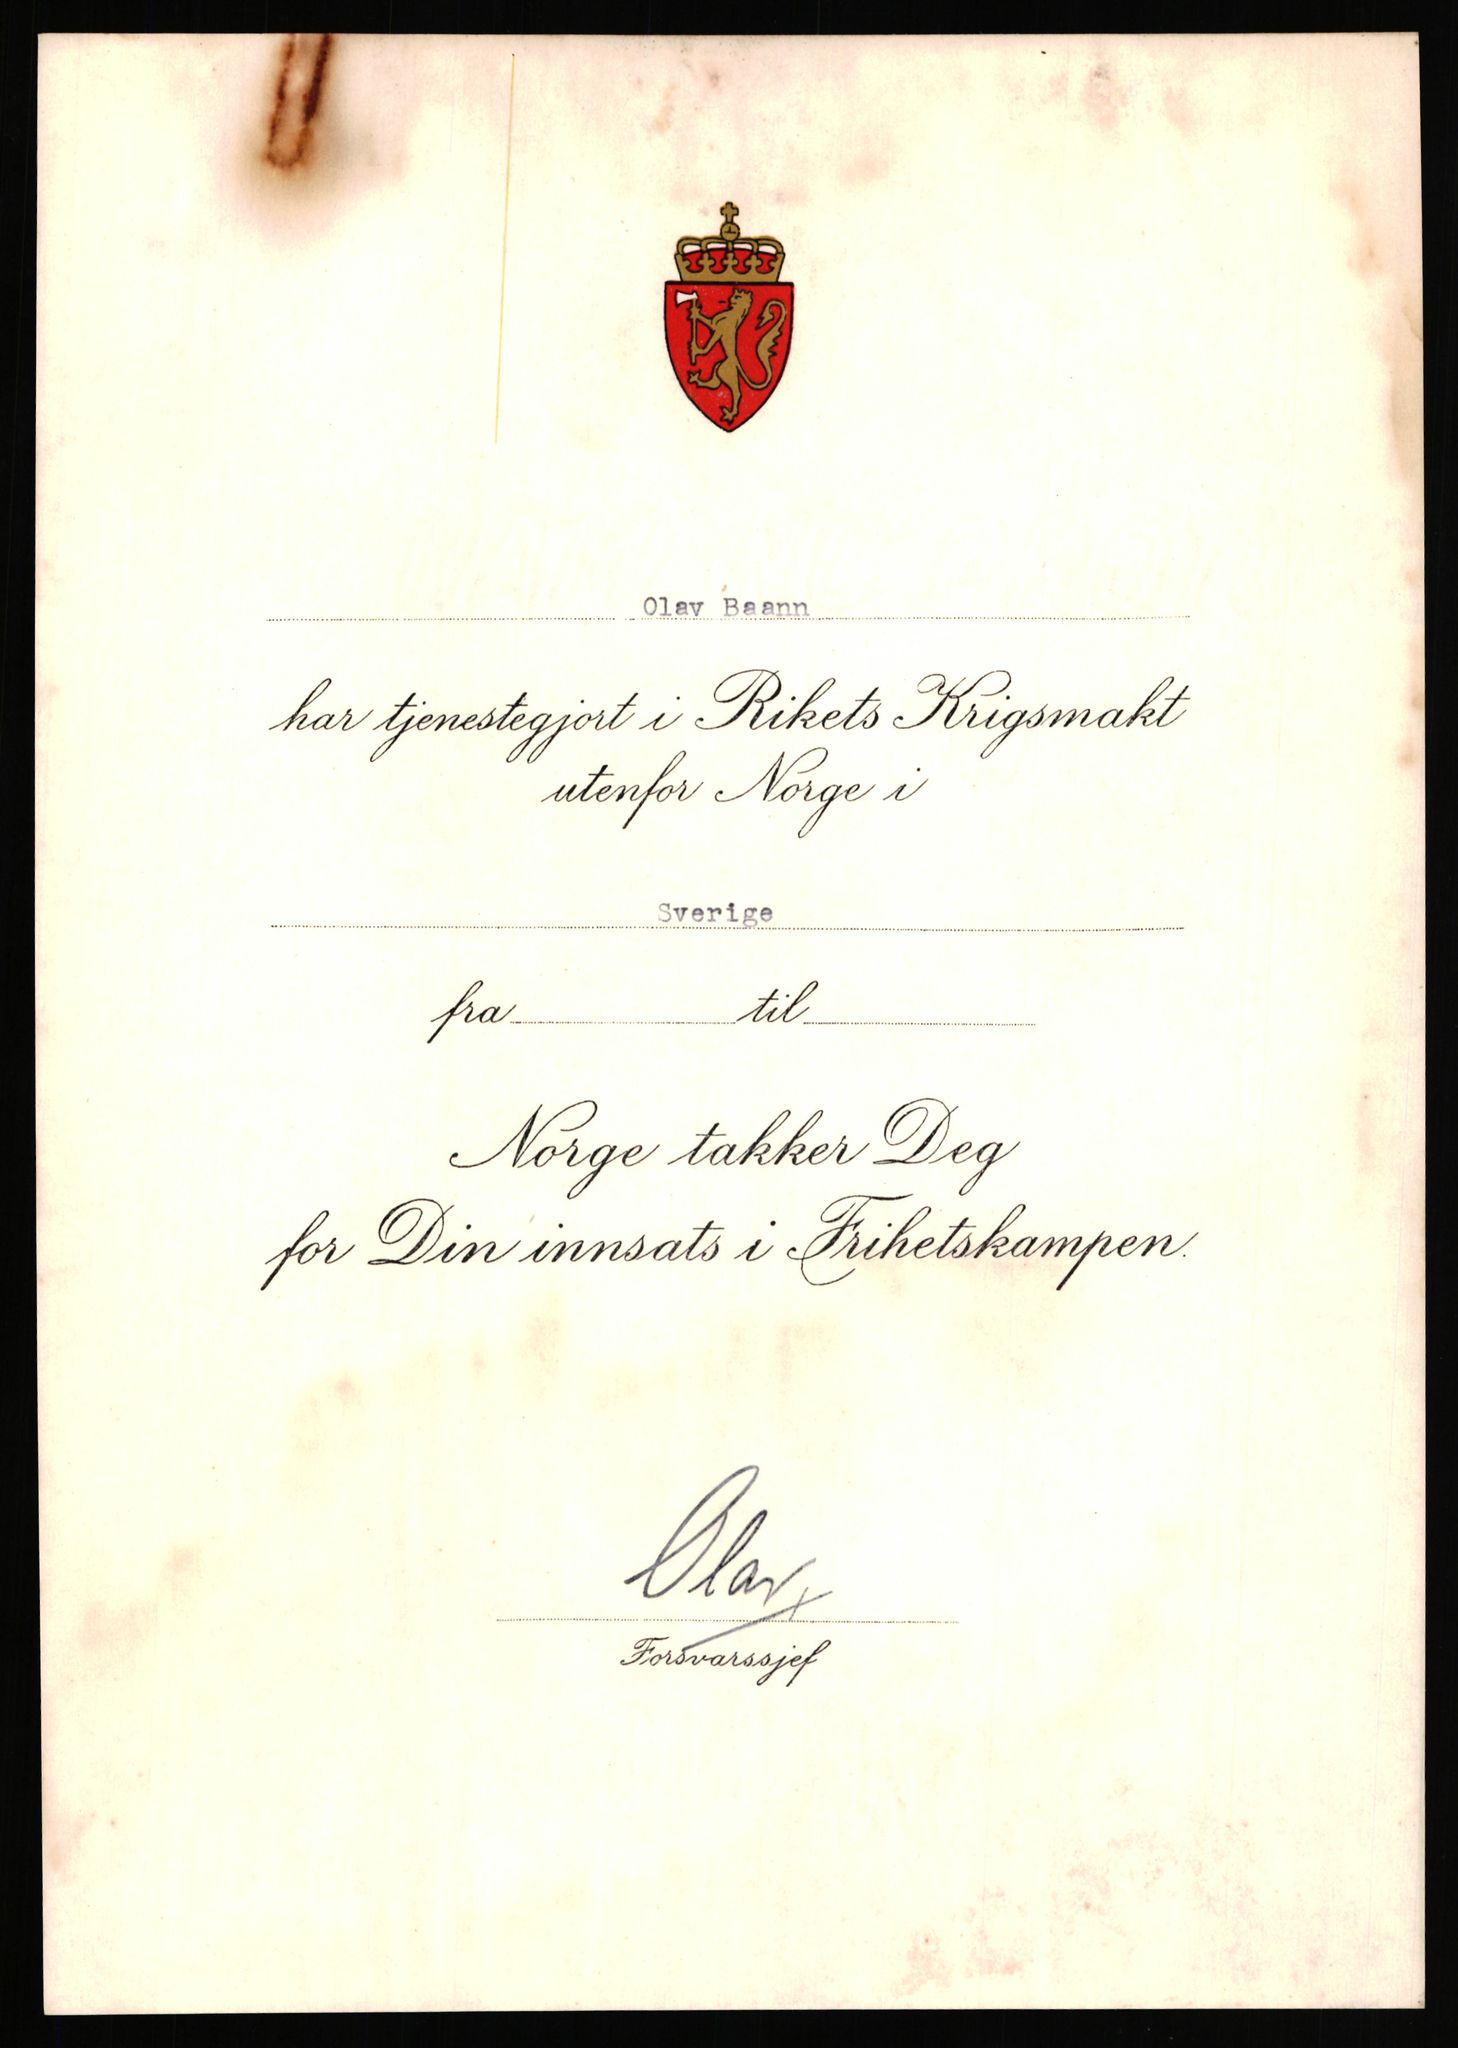 Olav Baann
har tjenestegjort i Rikets Krigsmakt
utenfor Norge i
Sverige
fra til
Norge takker Deg
for Din innsats i Frihetskampen.
Olav
Forsvarssjef